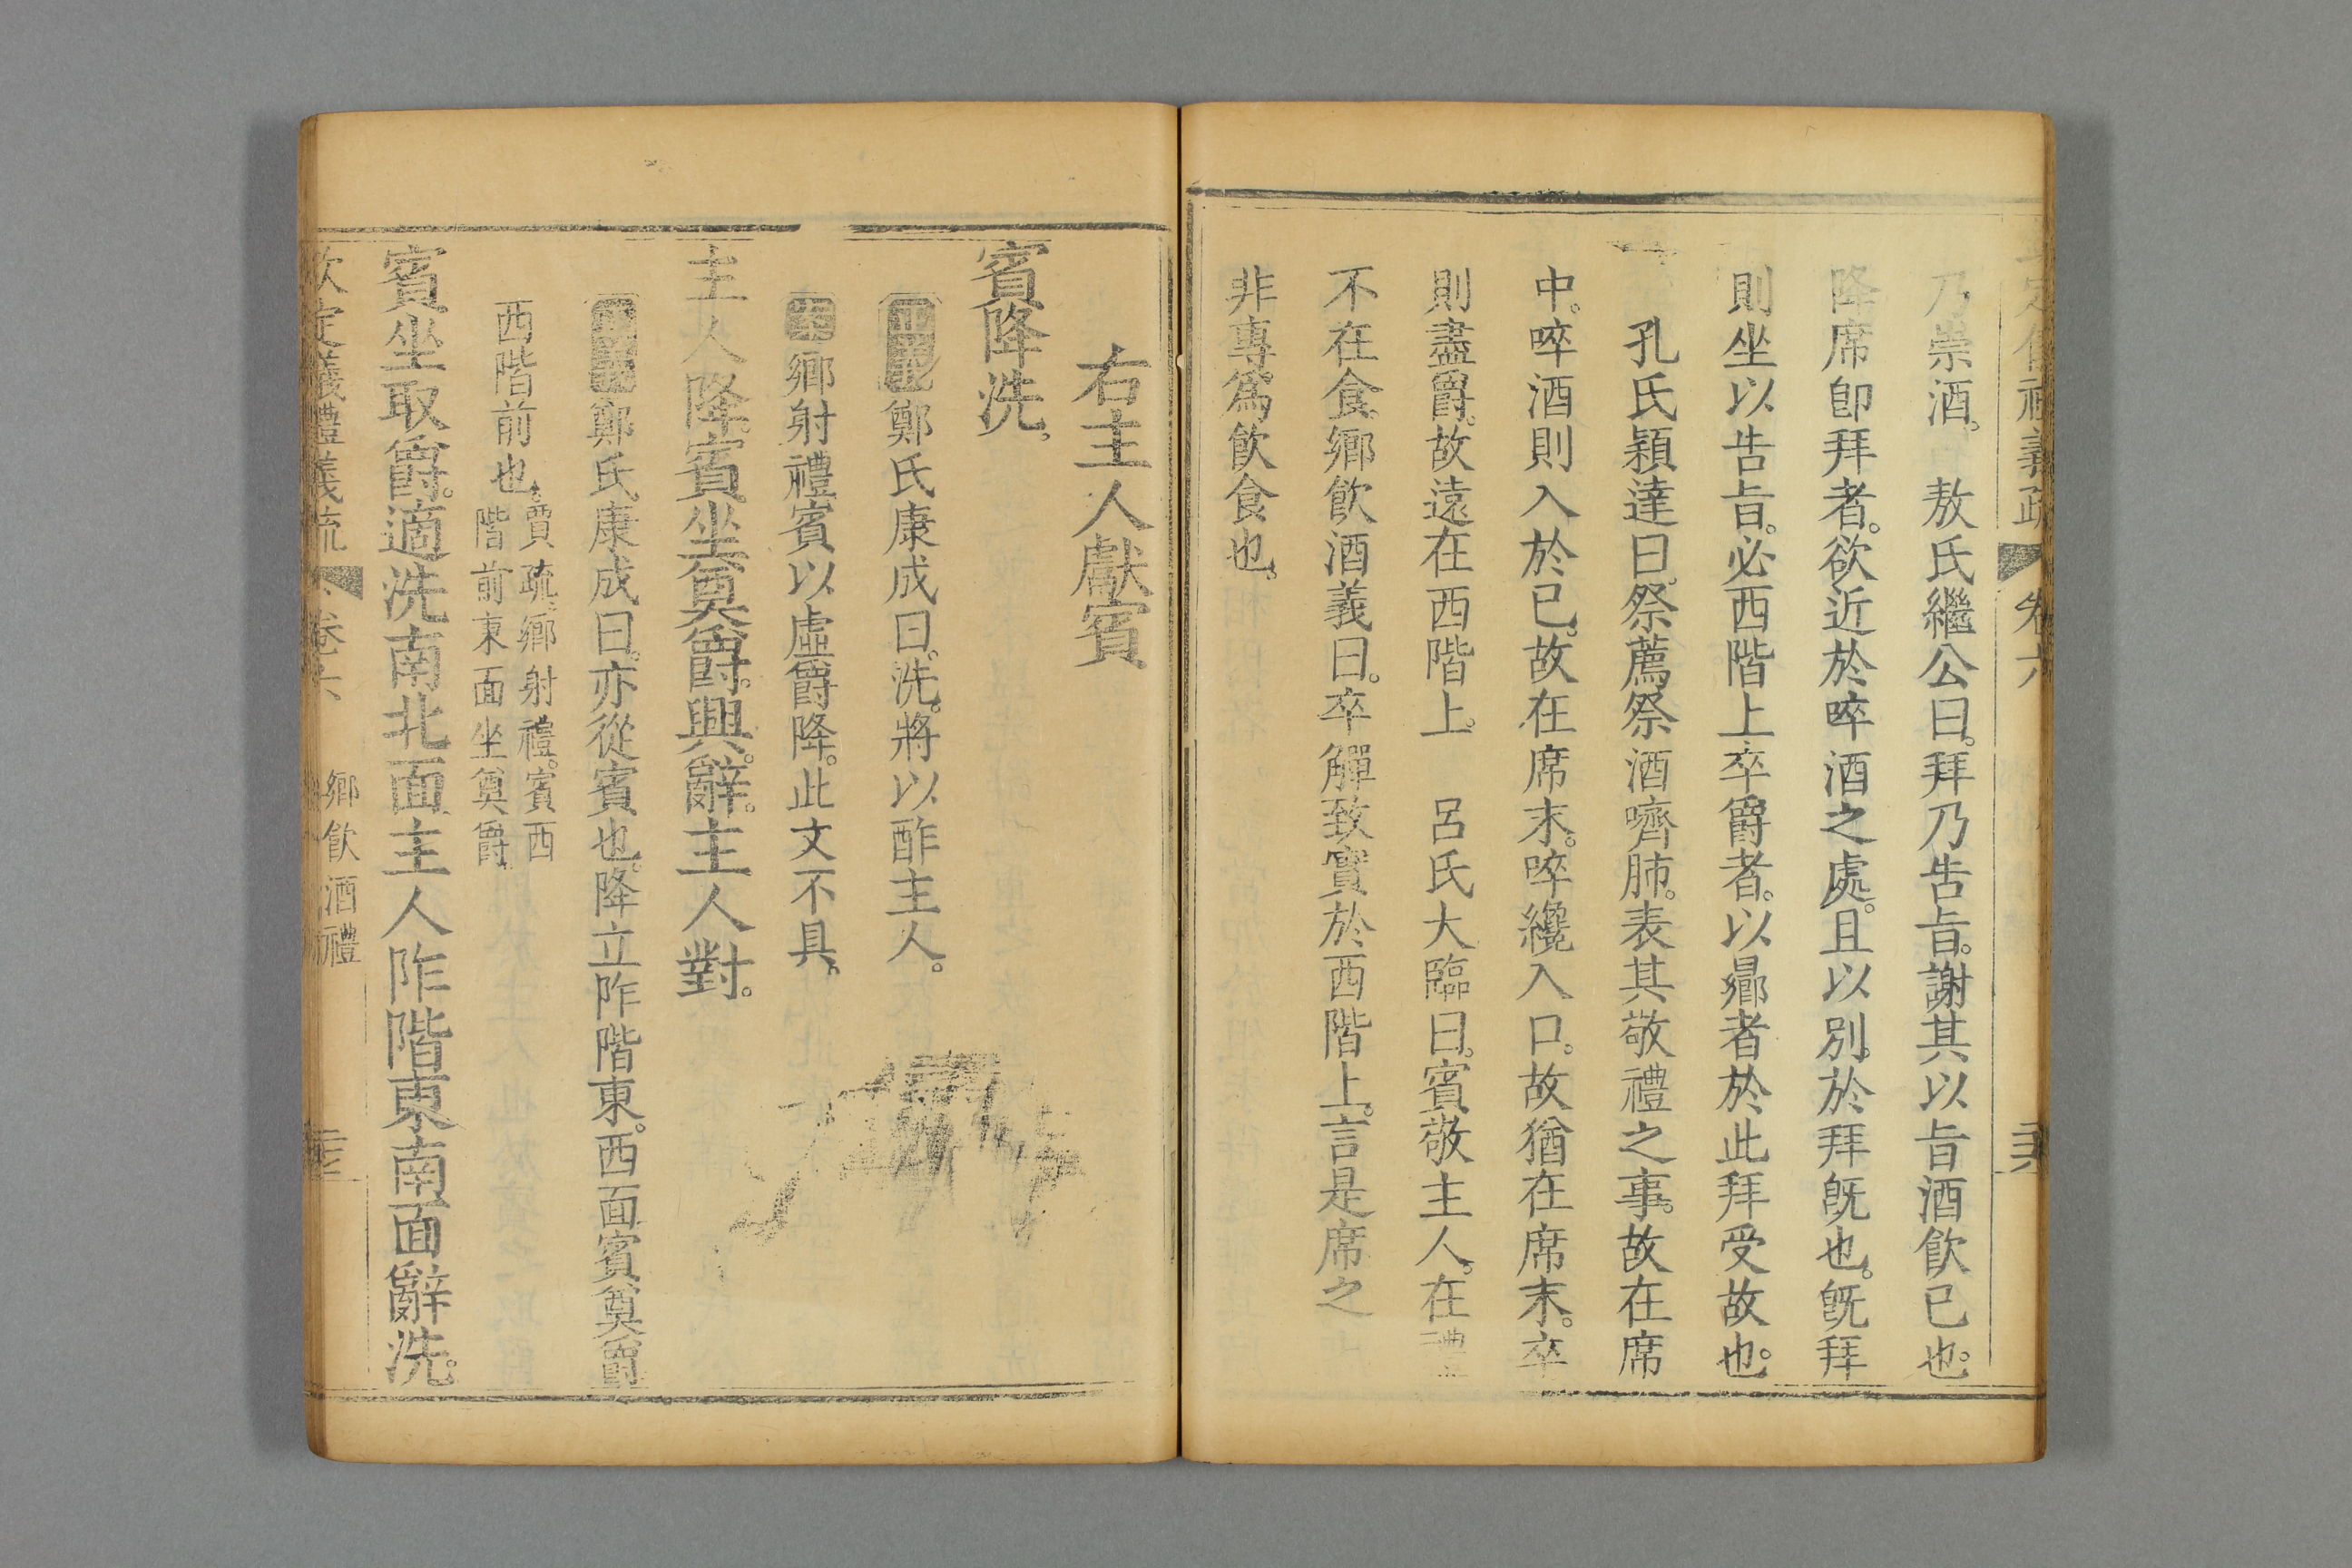 定儀禮義疏 卷六
乃崇酒。 敖氏繼公曰。拜乃告旨。謝其以旨酒飮已也。
降席卽拜者。欲近於啐酒之處。且以別於拜旣也。旣拜
則坐以告旨。必西階上卒爵者。以曏者於此拜受故也。
孔氏穎達曰。祭薦祭酒嚌肺。表其敬禮之事。故在席
中。啐酒則入於已。故在席末。啐纔入口。故猶在席末。卒
則盡爵。故遠在西階上。 呂氏大臨曰。賓敬主人。在禮
不在食。鄉飮酒義曰。卒觶致實於西階上。言是席之
非專。爲飮食也。
右主人獻賓
賓降洗。
鄭氏康成曰。洗。將以酢主人。
鄉射禮賓以虛爵降。此文不具。
主人降。賓坐奠爵。興。辭。主人對。
鄭氏康成曰。亦從賓也。降立阼階東。西面賓奠爵
西階前也。賈疏。鄉射禮。賓西
階前東面坐奠爵
賓坐取爵。適洗南北面主人阼階東南面辭洗。
欽定儀禮義疏 卷六 鄉飮酒禮